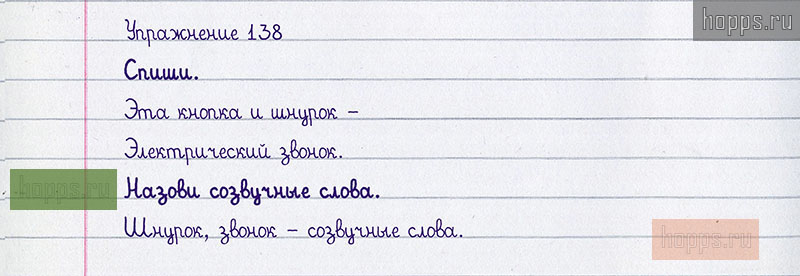 hopps.ru
Упражнение 138
Спиши.
Эта кнопка и шнурок –
Электрический звонок.
hopps.ru
Назови созвучные слова.
Шнурок, звонок – созвучные слова.
hopps.ru